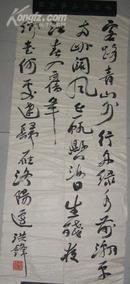 客路青山外行舟绿水前潮平
两岸阔风正一帆悬海日生残夜
江春入舊年
鄉書何處達歸雁洛陽邊 洪鋒